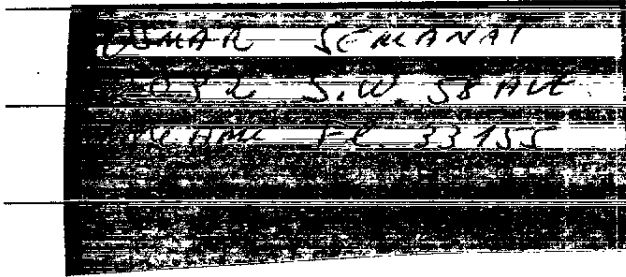 OSMAR SEMANAT
S.W. 58 AVE
MIAMI FL. 33155